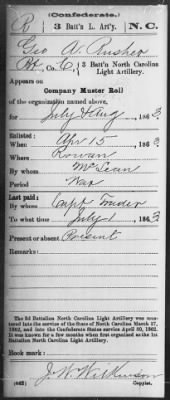 (Confederate.)
B 3 Batt'n L. Art'y. N. C.
Geo A. Rusher
Pvt, Co. C, 3 Battalion North Carolina
Light Artillery.
Appears on
Company Muster Roll
of the organization named above,
for July & Aug, 1863.
Enlisted:
When Apr 15, 1863.
Where Rowan
By whom McLean
Period War
Last paid:
By whom Capt
To what time July 1, 1863.
Present or absent Present
Remarks:
The 3d Battalion North Carolina Light Artillery was mustered
into the service of the State of North Carolina March 17,
1862, and into the Confederate States service April 30, 1862.
It was known for a few months when first organized as the 1st
Battalion North Carolina Light Artillery.
Book mark:
J. W. Wilkinson
(642) Copyist.